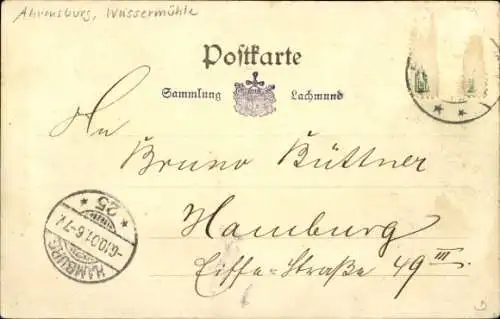 Ahrensburg, Wassermühle
Postkarte
Sammlung Lachmund
An
Bruno Büttner
Hamburg
Eiffe-Straße 49 III.
HAMBURG
* 25 *